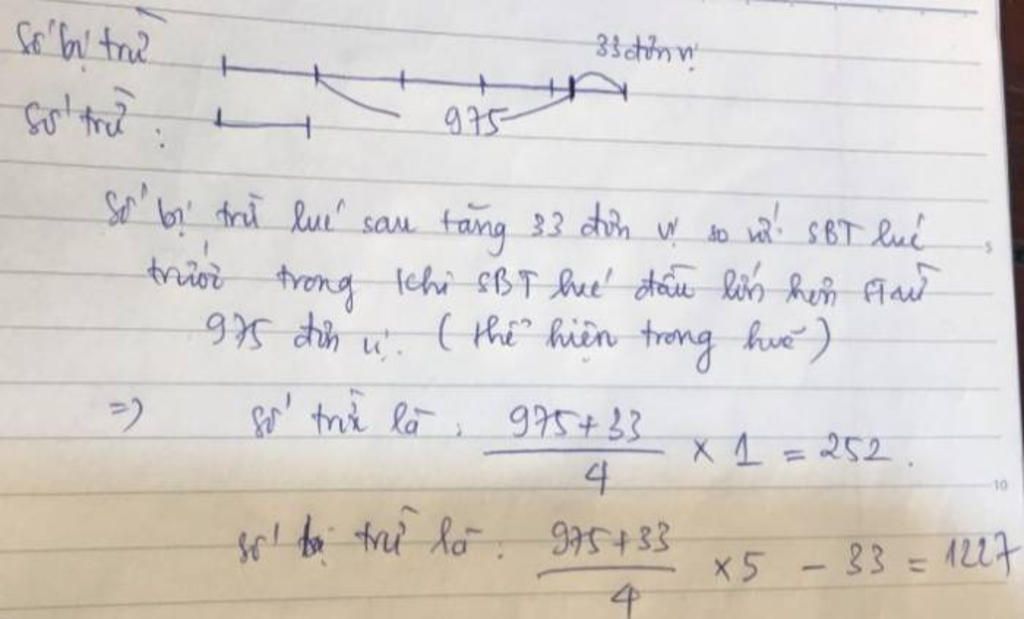 Số bị trừ
33 đơn vị
Số trừ :
975
Số bị trừ lúc sau tăng 33 đơn vị so với SBT lúc
trước trong khi SBT lúc đầu lớn hơn
975 đơn vị. (thể hiện trong hvẽ)
=> số trừ là : 975+33 / 4 × 1 = 252.
số bị trừ là : 975+33 / 4 ×5 - 33 = 1227